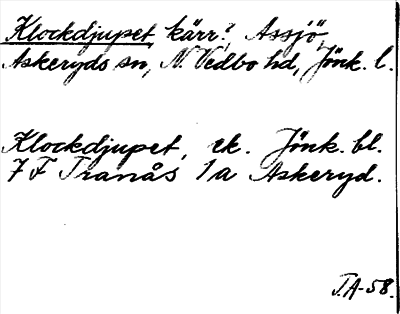 Klockdjupet kärr?, Assjö,
Askeryds sn, N. Vedbo hd, Jönk. l.
Klockdjupet, ek. Jönk. bl.
7 F Tranås 1a Askeryd.
J.A-58.